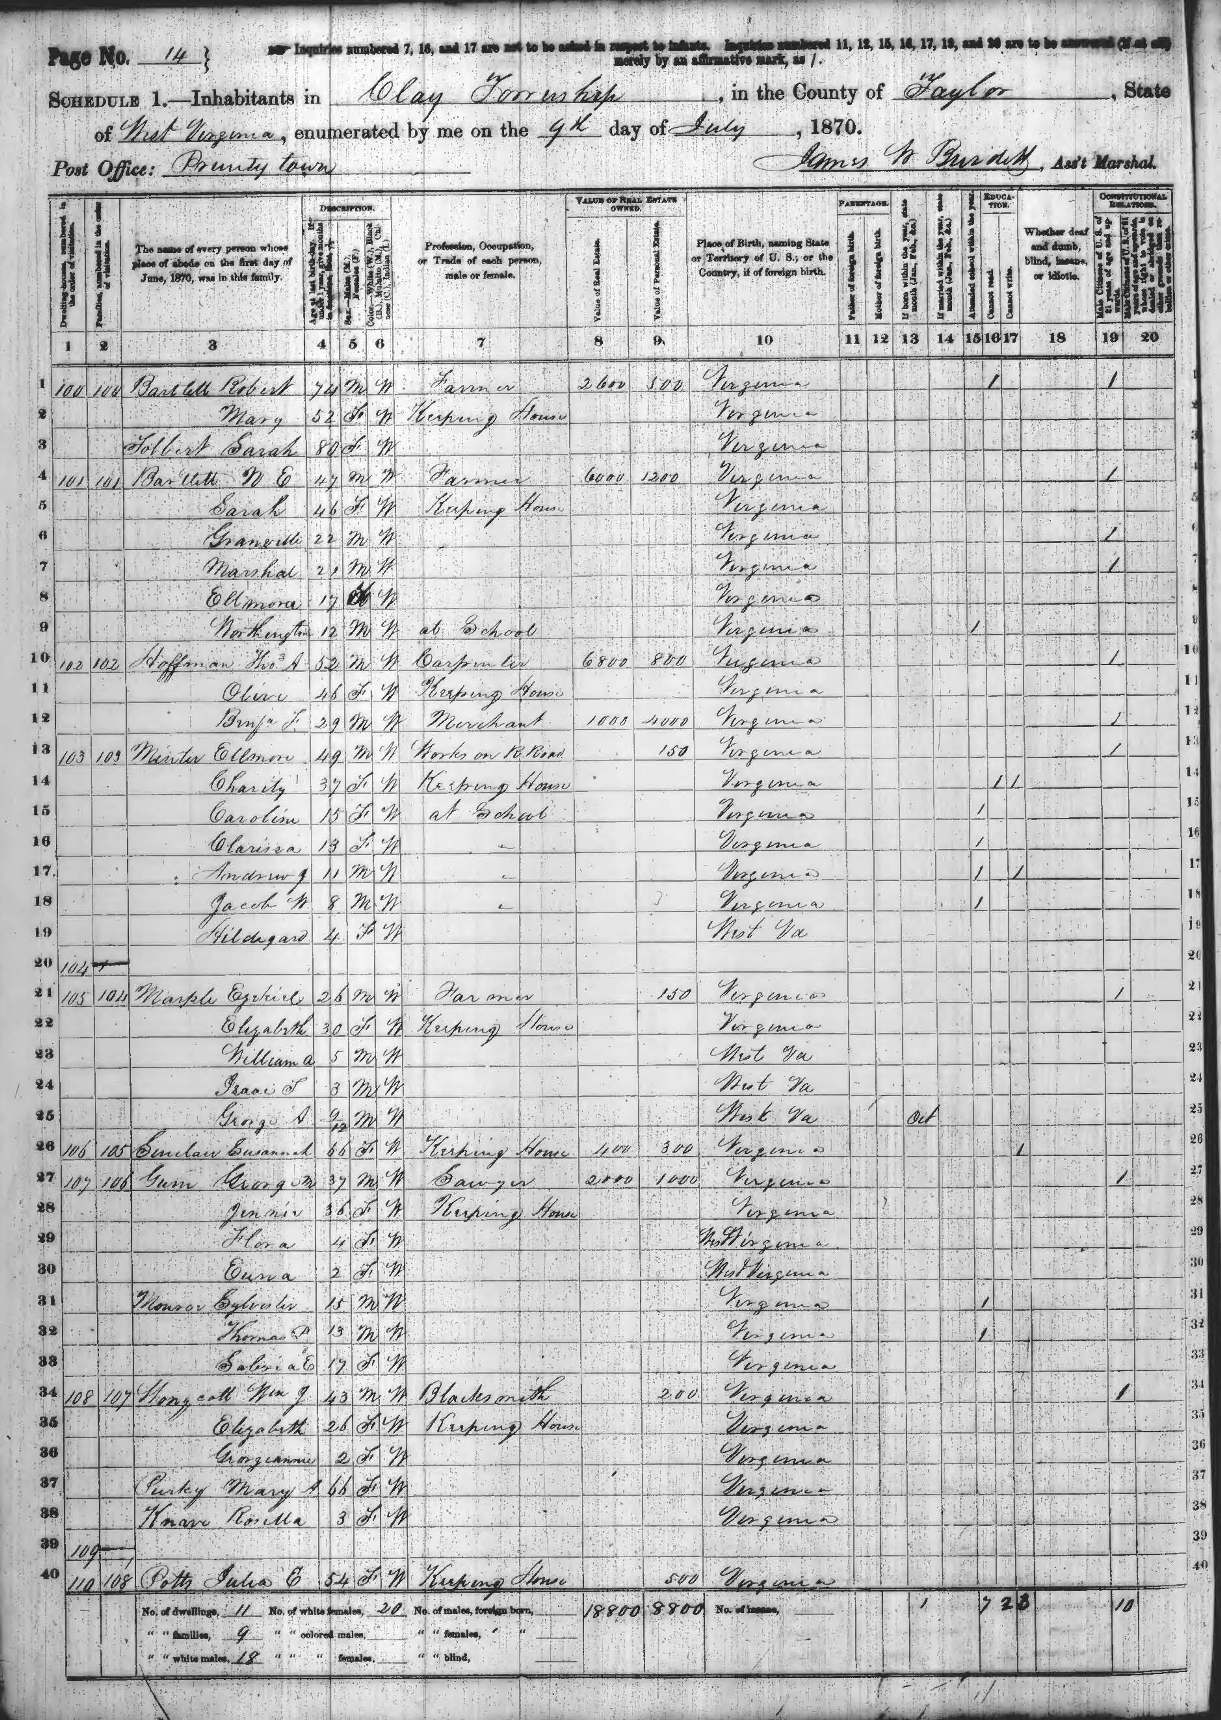 Page No. 14 }
Inquiries numbered 7, 16, and 17 are not to be asked in respect to infants. Inquiries numbered 11, 12, 15, 16, 17, 19, and 20 are to be answered (if at all)
merely by an affirmative mark, as /.
SCHEDULE 1.—Inhabitants in Clay Township, in the County of Taylor, State
of West Virginia, enumerated by me on the 9th day of July, 1870.
Post Office: Prunty town James W Burdett, Ass't Marshal.
Dwelling-houses, numbered in the order of visitation.
Families, numbered in the order of visitation.
The name of every person whose place of abode on the first day of June, 1870, was in this family.
DESCRIPTION.
Sex.—Males (M.), Females (F.)
Profession, Occupation, or Trade of each person, male or female.
VALUE OF REAL ESTATE OWNED.
Value of Real Estate.
Value of Personal Estate.
Place of Birth, naming State or Territory of U. S.; or the Country, if of foreign birth.
PARENTAGE.
Father of foreign birth.
Mother of foreign birth.
If born within the year, state month (Jan., Feb., &c.)
If married within the year, state month (Jan., Feb., &c.)
Attended school within the year.
EDUCATION.
Cannot read.
Cannot write.
Whether deaf and dumb, blind, insane, or idiotic.
CONSTITUTIONAL RELATIONS.
1 2 3 4 5 6 7 8 9 10 11 12 13 14 15 16 17 18 19 20
1 100 100 Bartlett Robert 74 M W Farmer 2600 500 Virginia 1 1 1
2 Mary 52 F W Keeping House Virginia 2
3 Tolbert Sarah 80 F W Virginia 3
4 101 101 Bartlett N E 47 M W Farmer 6000 1200 Virginia 1 4
5 Sarah 46 F W Keeping House Virginia 5
6 Granville 22 M W Virginia 1 6
7 Marshal 21 M W Virginia 1 7
8 Ellmora 17 W Virginia 8
9 Worthington 12 M W at School Virginia 1 9
10 102 102 Hoffman Thos A 52 M W Carpenter 6800 800 Virginia 1 10
11 Olive 46 F W Keeping House Virginia 11
12 Benja F. 29 M W Merchant 1000 4000 Virginia 1 12
13 103 103 Minter Ellmore 49 M W Works on R. Road 150 Virginia 1 13
14 Charity 37 F W Keeping House Virginia 1 1 14
15 Caroline 15 F W at School Virginia 1 15
16 Clarissa 13 F W " Virginia 1 16
17 Andrew J 11 M W " Virginia 1 1 17
18 Jacob W 8 M W " Virginia 1 18
19 Hildegard 4 F W West Va 19
20 104 20
21 105 104 Marple Ezekiel 26 M W Farmer 150 Virginia 1 21
22 Elizabeth 30 F W Keeping House Virginia 22
23 William A 5 M W West Va 23
24 Isaac T 3 M W West Va 24
25 George A 9/12 M W West Va Oct 25
26 106 105 Sinclair Susannah 66 F W Keeping House 400 300 Virginia 1 26
27 107 106 Gum George M 37 M W Sawyer 2000 1000 Virginia 1 27
28 Jennie 36 F W Keeping House Virginia 28
29 Flora 4 F W West Virginia 29
30 2 F W West Virginia 30
31 Monroe Sylvester 15 M W Virginia 1 31
32 Thomas P 13 M W Virginia 1 32
33 E 17 F W Virginia 33
34 108 107 Wm J. 43 M W Blacksmith 200 Virginia 1 34
35 Elizabeth 26 F W Keeping House Virginia 35
36 Georgeannie 2 F W Virginia 36
37 Mary A 66 F W Virginia 37
38 Knave Rosella 3 F W Virginia 38
39 109 39
40 110 108 Potts Julia E 54 F W Keeping House 500 Virginia 40
No. of dwellings, 11 No. of white females, 20 No. of males, foreign born, 18800 8800 No. of insane, 1 7 2 3 10
" " families, 9 " " colored males, " " females, " "
" " white males, 18 " " " females, " " blind,